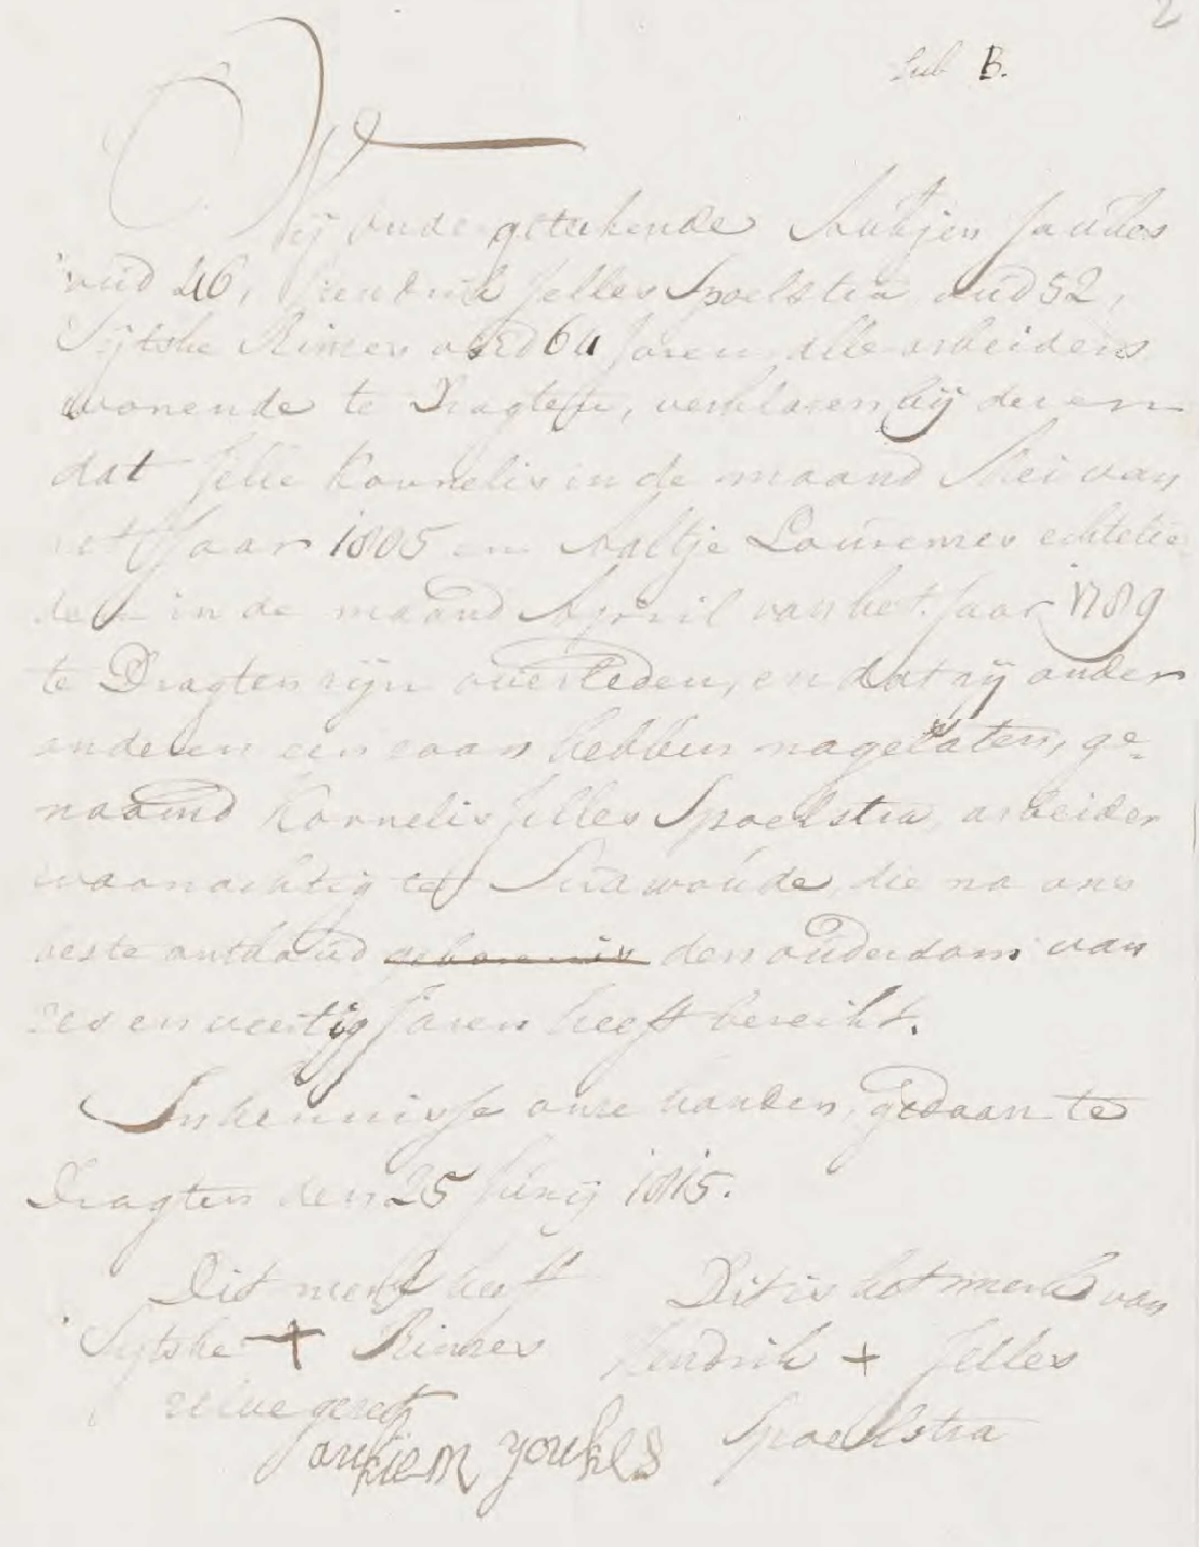 2
Sub B.
Wij ondergetekende Aukjen Jaukes
oud 46, Hendrik Jelles Spoelstra oud 52,
Sijtske Rinses oud 64 Jaren, alle arbeiders
wonende te Dragten, verklaren bij dezen
dat Jelle Kornelis in de maand Mei van
het Jaar 1805 en Aaltje Lourenses echtelie
den in de maand April van het Jaar 1789
te Dragten zijn overleden, en dat zij onder
anderen een zoon hebben nagelaten, ge-
naamd Kornelis Jelles Spoelstra, arbeider
woonachtig te Suawoude, die na ons
beste onthoud geboren is den ouderdom van
zes en veertig Jaren heeft bereikt.
In kennisse onze handen, gedaan te
Dragten den 25 Junij 1815.
Dit merk heeft
Sijtske + Rinses
gezet
Dit is het merk van
Hendrik + Jelles
Spoelstra
aukiem youkes